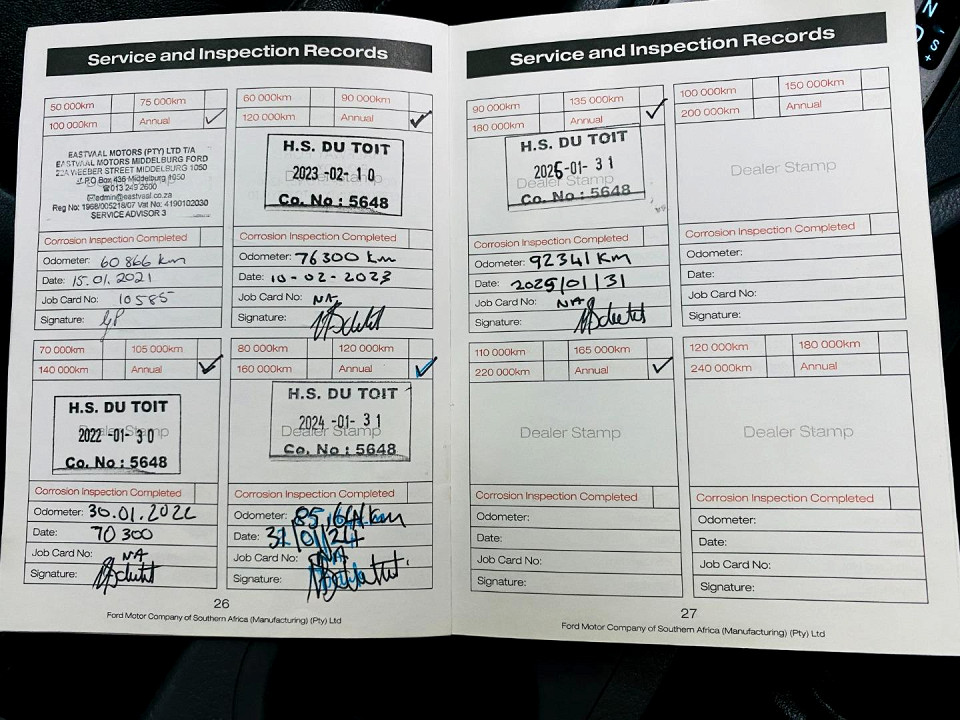 Service and Inspection Records
50 000km 75 000km
100 000km Annual ✓
EASTVAAL MOTORS (PTY) LTD T/A
EASTVAAL MOTORS MIDDELBURG FORD
22A WEEBER STREET MIDDELBURG 1050
P.O Box 436 Middelburg 1050
☎013 249 2600
admin@eastvaal.co.za
Reg No: 1968/005218/07 Vat No: 4190102030
SERVICE ADVISOR 3
Corrosion Inspection Completed
Odometer: 60 866 km
Date: 15.01.2021
Job Card No: 10585
Signature:
60 000km 90 000km
120 000km Annual ✓
H.S. DU TOIT
2023 -02- 10
Dealer Stamp
Co. No : 5648
Corrosion Inspection Completed
Odometer: 76300 km
Date: 10-02-2023
Job Card No: NA
Signature:
70 000km 105 000km
140 000km Annual ✓
H.S. DU TOIT
2022 -01- 30
Dealer Stamp
Co. No : 5648
Corrosion Inspection Completed
Odometer: 30.01.2022
Date: 70 300
Job Card No: NA
Signature:
80 000km 120 000km
160 000km Annual ✓
H.S. DU TOIT
2024 -01- 31
Dealer Stamp
Co. No : 5648
Corrosion Inspection Completed
Odometer: 85 164 km
Date: 31/01/24
Job Card No: NA
Signature:
26
Ford Motor Company of Southern Africa (Manufacturing) (Pty) Ltd
Service and Inspection Records
90 000km 135 000km
180 000km Annual ✓
H.S. DU TOIT
2025 -01- 31
Dealer Stamp
Co. No : 5648
Corrosion Inspection Completed
Odometer: 92341 Km
Date: 2025/01/31
Job Card No: NA
Signature:
100 000km 150 000km
200 000km Annual
Dealer Stamp
Corrosion Inspection Completed
Odometer:
Date:
Job Card No:
Signature:
110 000km 165 000km
220 000km Annual ✓
Dealer Stamp
Corrosion Inspection Completed
Odometer:
Date:
Job Card No:
Signature:
120 000km 180 000km
240 000km Annual
Dealer Stamp
Corrosion Inspection Completed
Odometer:
Date:
Job Card No:
Signature:
27
Ford Motor Company of Southern Africa (Manufacturing) (Pty) Ltd
N
S